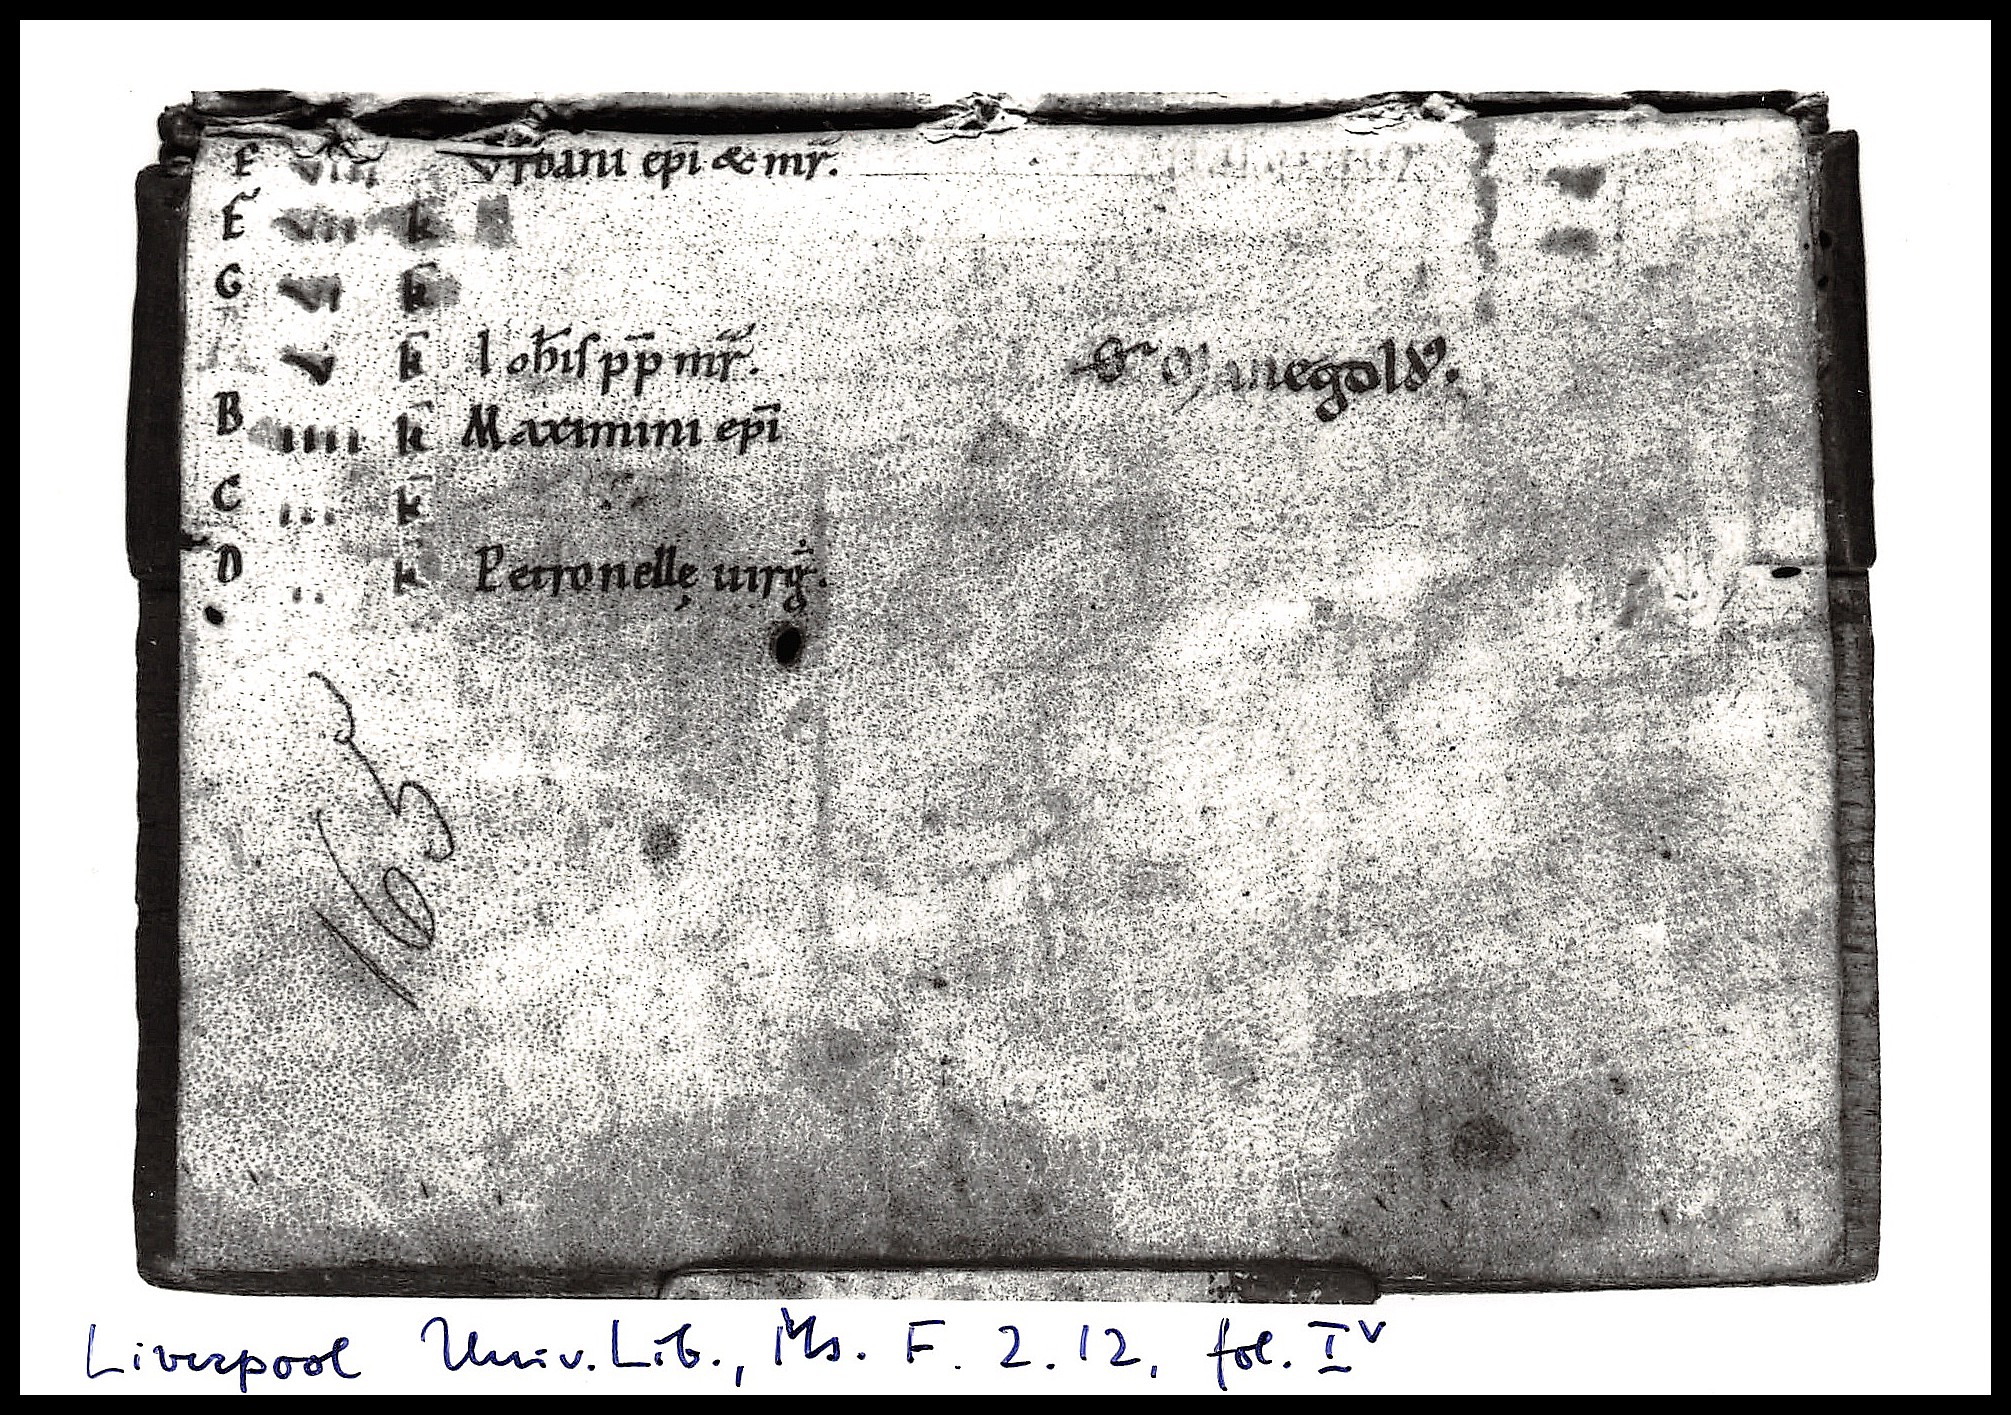 E viii Vrbani ep̄i & mr̄.
F vii k̄
G vi k̄
v k̄ Ioh̄is pp̄ mr̄.
B iiii k̄ Maximini ep̄i
C iii k̄
D ii k Petronellę uirḡ.
163
Liverpool Univ. Lib., Ms. F. 2. 12, fol. Iᵛ